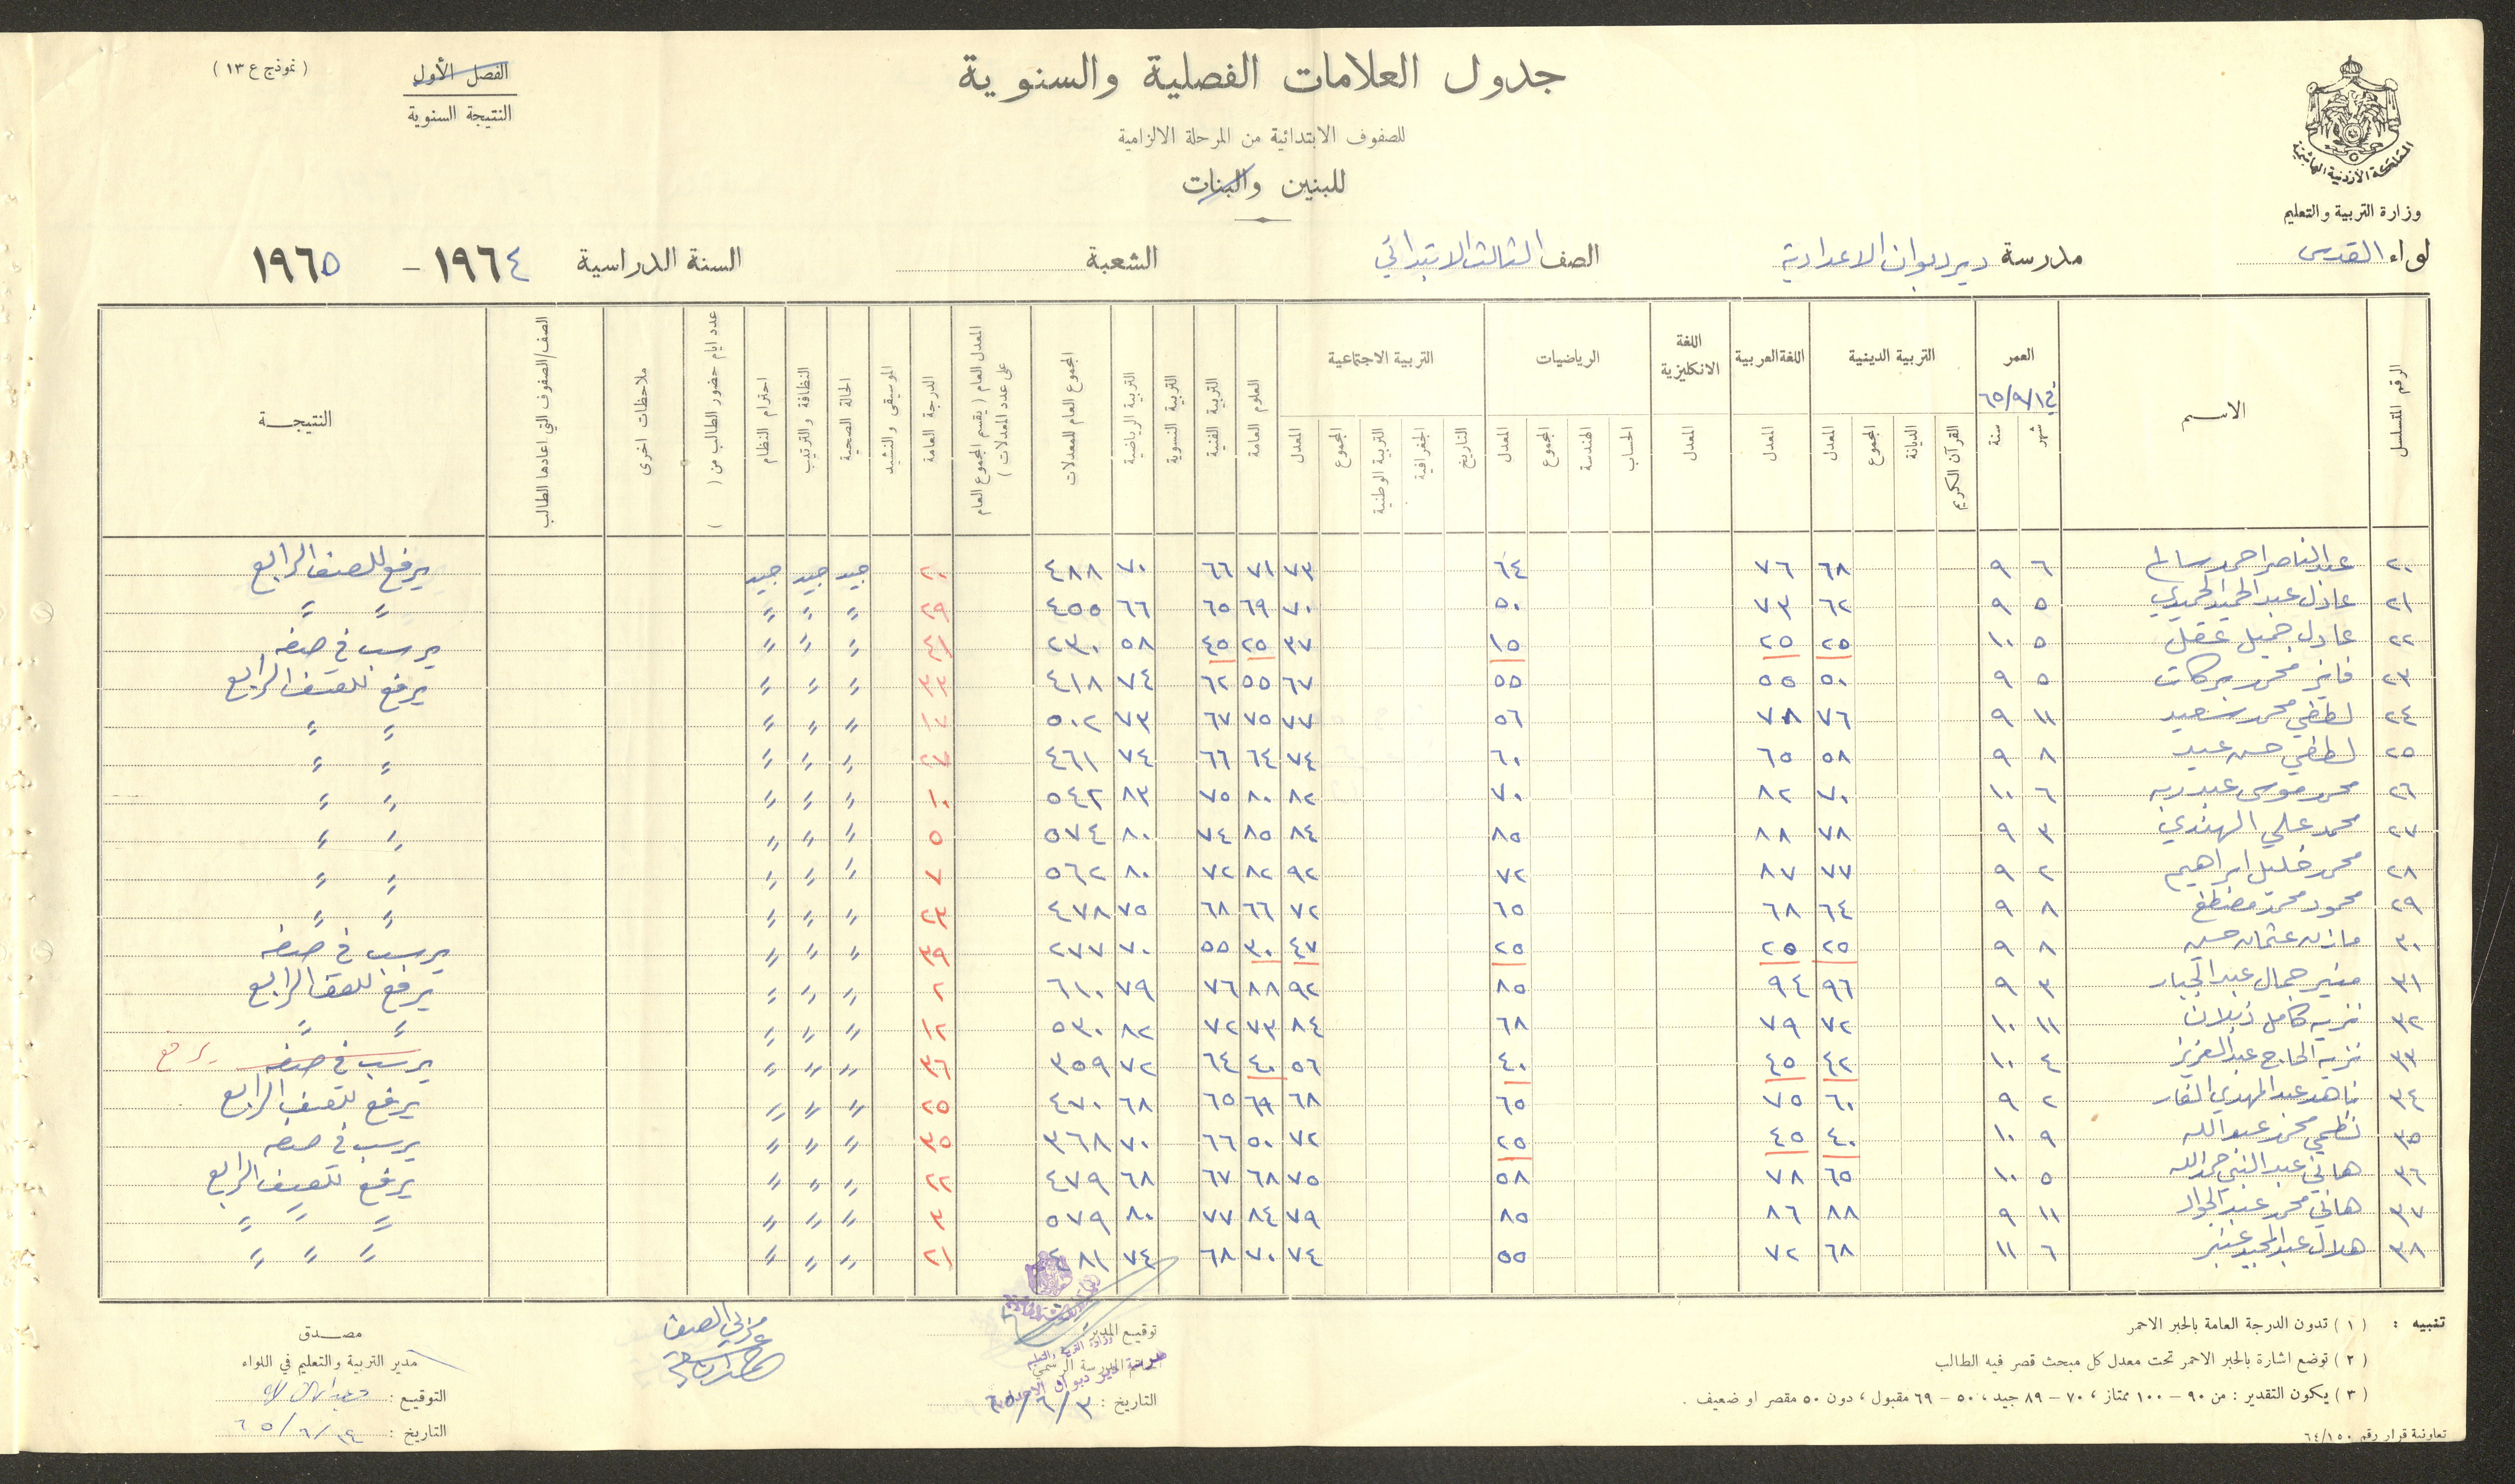 جدول العلامات الفصلية والسنوية
للصفوف الابتدائية من المرحلة الالزامية
للبنين والبنات
الفصل الأول
النتيجة السنوية
( نموذج ع ١٣ )
المملكة الأردنية الهاشمية
وزارة التربية والتعليم
لواء القدس مدرسة دير دبوان الاعدادية الصف الثالث الابتدائي الشعبة السنة الدراسية ١٩٦٤ - ١٩٦٥
الرقم المتسلسل الاسم العمر في ٦٥/٩/١ شهر سنة التربية الدينية القرآن الكريم الديانة المجموع المعدل اللغة العربية المعدل اللغة الانكليزية المعدل الرياضيات الحساب الهندسة المجموع المعدل التربية الاجتماعية التاريخ الجغرافية التربية الوطنية المجموع المعدل العلوم العامة التربية الفنية التربية النسوية التربية الرياضية المجموع العام للمعدلات المعدل العام ( يقسم المجموع العام على عدد المعدلات ) الدرجة العامة الموسيقى والنشيد الحالة الصحية النظافة والترتيب احترام النظام عدد ايام حضور الطالب من ( ) ملاحظات اخرى الصف/الصفوف التي اعادها الطالب النتيجة
٢٠ عبد الناصر احمد سالم ٦ ٩ ٦٨ ٧٦ ٦٤ ٧٣ ٧١ ٦٦ ٧٠ ٤٨٨ ٢٠ جيد جيد جيد يرفع للصف الرابع
٢١ عادل عبد الحميد الحميدي ٥ ٩ ٦٢ ٧٣ ٥٠ ٧٠ ٦٩ ٦٥ ٦٦ ٤٥٥ ٢٩ " " " " "
٢٢ عادل جميل عقل ٥ ١٠ ٢٥ ٢٥ ١٥ ٣٧ ٢٥ ٤٥ ٥٨ ٢٣٠ ٤١ " " " يرسب في صفه
٢٣ فايز محمد بركات ٥ ٩ ٥٠ ٥٥ ٥٥ ٦٧ ٥٥ ٦٢ ٧٤ ٤١٨ ٣٣ " " " يرفع للصف الرابع
٢٤ لطفي محمد سعيد ١١ ٩ ٧٦ ٧٨ ٥٦ ٧٧ ٧٥ ٦٧ ٧٣ ٥٠٢ ١٧ " " " " "
٢٥ لطفي حسن عيد ٨ ٩ ٥٨ ٦٥ ٦٠ ٧٤ ٦٤ ٦٦ ٧٤ ٤٦١ ٢٧ " " " " "
٢٦ محمد موسى عبد ربه ٦ ١٠ ٧٠ ٨٢ ٧٠ ٨٢ ٨٠ ٧٥ ٨٣ ٥٤٢ ١٠ " " " " "
٢٧ محمد علي الهندي ٣ ٩ ٧٨ ٨٨ ٨٥ ٨٤ ٨٥ ٧٤ ٨٠ ٥٧٤ ٥ " " " " "
٢٨ محمد خليل ابراهيم ٢ ٩ ٧٧ ٨٧ ٧٢ ٩٢ ٨٢ ٧٢ ٨٠ ٥٦٢ ٧ " " " " "
٢٩ محمود محمد مصطفى ٨ ٩ ٦٤ ٦٨ ٦٥ ٧٢ ٦٦ ٦٨ ٧٥ ٤٧٨ ٢٣ " " " " "
٣٠ مازن عثمان حسين ٨ ٩ ٢٥ ٢٥ ٢٥ ٤٧ ٣٠ ٥٥ ٧٠ ٢٧٧ ٣٩ " " " يرسب في صفه
٣١ منير جمال عبد الجبار ٣ ٩ ٩٦ ٩٤ ٨٥ ٩٢ ٨٨ ٧٦ ٧٩ ٦١٠ ٢ " " " يرفع للصف الرابع
٣٢ نزيه كامل ذبلان ١١ ١٠ ٧٢ ٧٩ ٦٨ ٨٤ ٧٣ ٧٢ ٨٢ ٥٣٠ ١٢ " " " " "
٣٣ نزيه الحاج عبد العزيز ٤ ١٠ ٤٢ ٤٥ ٤٠ ٥٦ ٤٠ ٦٤ ٧٢ ٣٥٩ ٣٦ " " " يرسب في صفه يرفع
٣٤ ناهد عبد المهدي الفار ٢ ٩ ٦٠ ٧٥ ٦٥ ٦٨ ٦٩ ٦٥ ٦٨ ٤٧٠ ٢٥ " " " يرفع للصف الرابع
٣٥ نظمي محمد عبد الله ٩ ١٠ ٤٠ ٤٥ ٢٥ ٧٢ ٥٠ ٦٦ ٧٠ ٣٦٨ ٣٥ " " " يرسب في صفه
٣٦ هاني عبد النبي حمد الله ٥ ١٠ ٦٥ ٧٨ ٥٨ ٧٥ ٦٨ ٦٧ ٦٨ ٤٧٩ ٢٢ " " " يرفع للصف الرابع
٣٧ هاني محمد عبد الجواد ١١ ٩ ٨٨ ٨٦ ٨٥ ٧٩ ٨٤ ٧٧ ٨٠ ٥٧٩ ٣ " " " " " "
٣٨ هلال عبد المجيد عنبر ٦ ١١ ٦٨ ٧٢ ٥٥ ٧٤ ٧٠ ٦٨ ٧٤ ٤٨١ ٢١ " " " " " "
تنبيه : ( ١ ) تدون الدرجة العامة بالحبر الاحمر
( ٢ ) توضع اشارة بالحبر الاحمر تحت معدل كل مبحث قصر فيه الطالب
( ٣ ) يكون التقدير : من ٩٠ - ١٠٠ ممتاز ، ٧٠ - ٨٩ جيد ، ٥٠ - ٦٩ مقبول ، دون ٥٠ مقصر او ضعيف .
تعاونية قرار رقم ٦٤/١٥٠
توقيع المدير :
وزارة التربية والتعليم
المدرسة الرسمي
التاريخ : ٦٥/٦/٣
مربي الصف
مصدق
مدير التربية والتعليم في اللواء
التوقيع :
التاريخ : ٦٥/٦/١٤